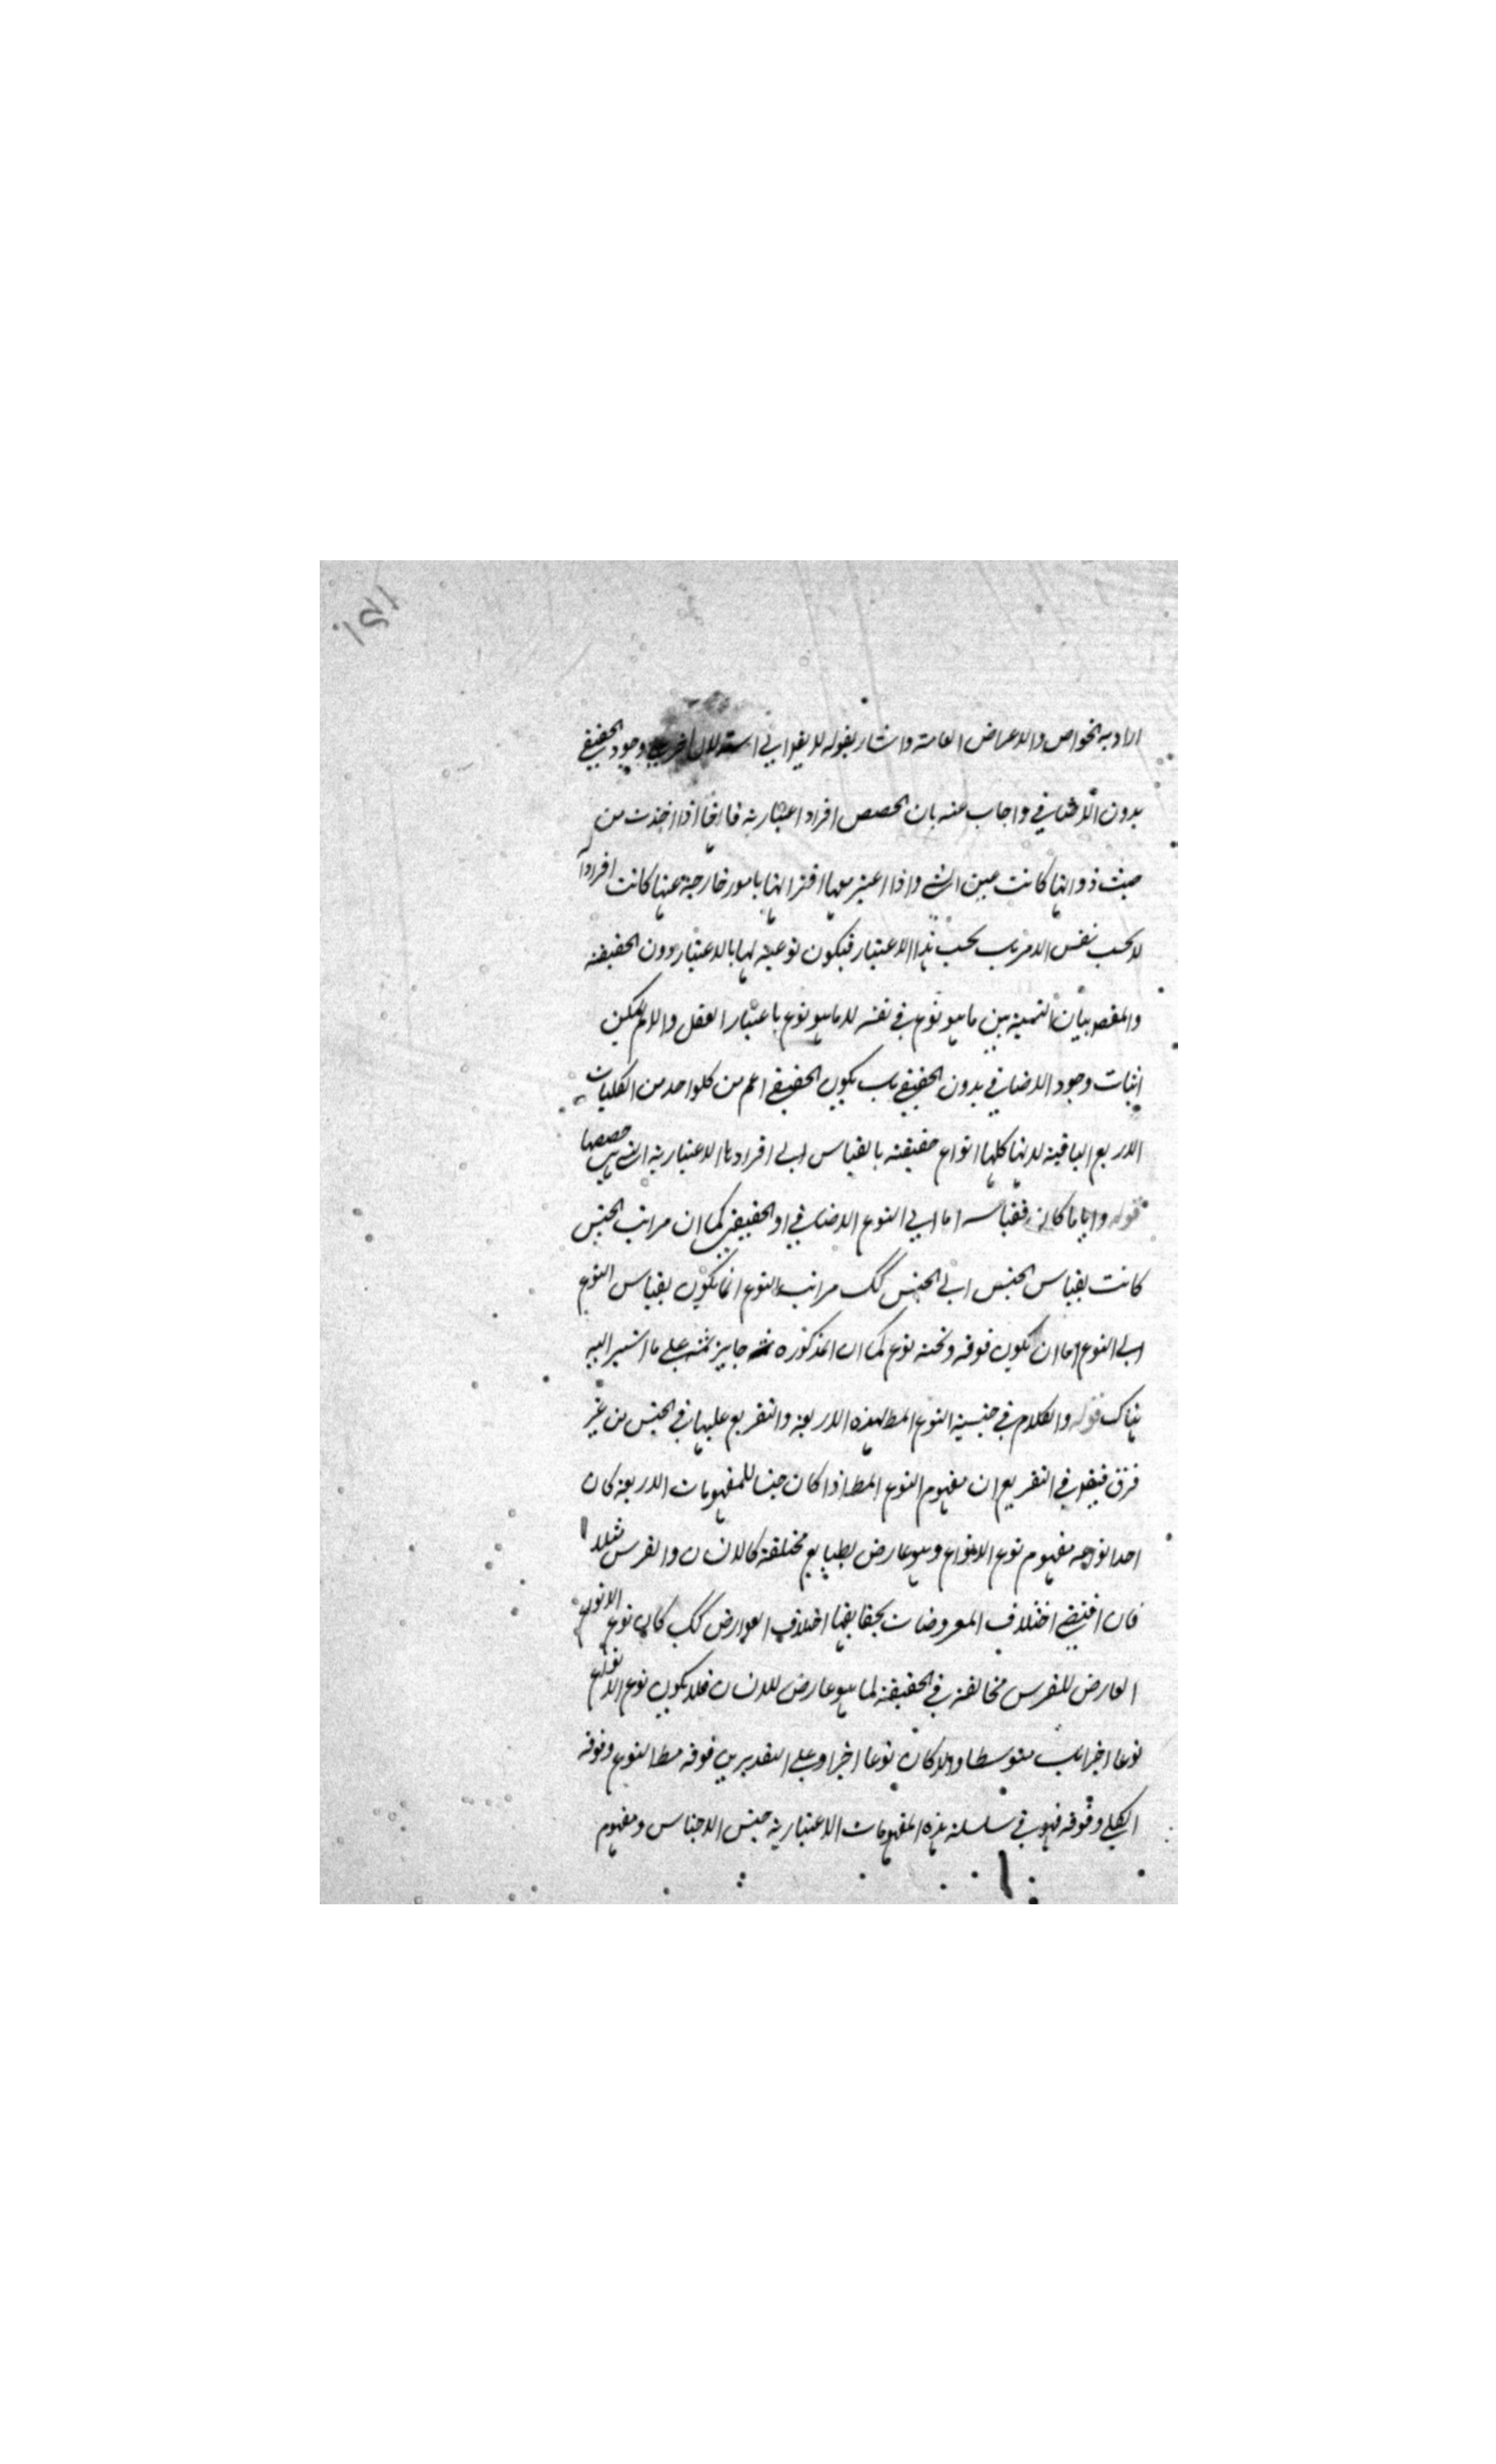 اراد به الخواص والاعراض العامة واشار بقوله لا يقرا الى استدلال اخر على وجود الحقيقي
بدون الاضافي واجاب عنه بان الحصص افراد اعتبارية فانها اذا اخذت من
حيث ذواتها كانت عين الشئ واذا اعتبر معها اقترانها بامور خارجة عنها كانت افرادا
لا بحسب نفس الامر بل بحسب هذا الاعتبار فيكون نوعيته لها بالاعتبار دون الحقيقة
والمقصد بيان التميز بين ما هو نوع في نفسه لا ما هو نوع باعتبار العقل والا لم يمكن
اثبات وجود الاضافي بدون الحقيقي بل يكون الحقيقي اعم من كلواحد من الكليات
الاربع الباقية لانها كلها انواع حقيقية بالقياس الى افرادها الاعتبارية التي هي حصصها
قوله واياما كان فقياسه اما الى النوع الاضافي او الحقيقي كما ان مراتب الجنس
كانت بقياس الجنس الى الجنس كك مراتب النوع انما يكون بقياس النوع
الى النوع اما ان يكون فوقه وتحته نوع كما ان المذكورة جايز ثمه على ما اشير اليه
هناك قوله والكلام في جنسية النوع المط لهذه الاربعة والتفريع عليها في الجنس من غير
فرق فيقل في التفريع ان مفهوم النوع المط اذا كان جنسا للمفهومات الاربعة كان
احد انواعه مفهوم نوع الانواع وهو عارض لطبايع مختلفة كالانسان والفرس مثلا
فان اقتضى اختلاف المعروضات بحقايقها اختلاف العوارض كك كان نوع الانواع
العارض للفرس مخالفة في الحقيقة لما هو عارض للانسان فلا يكون نوع الانواع
نوعا اخيرا بل متوسطا والا كان نوعا اخيرا وعلى التقديرين فوقه مط النوع وفوقه
الكلي وفوقه فهو في سلسلة هذه المفهومات الاعتبارية جنس الاجناس ومفهوم